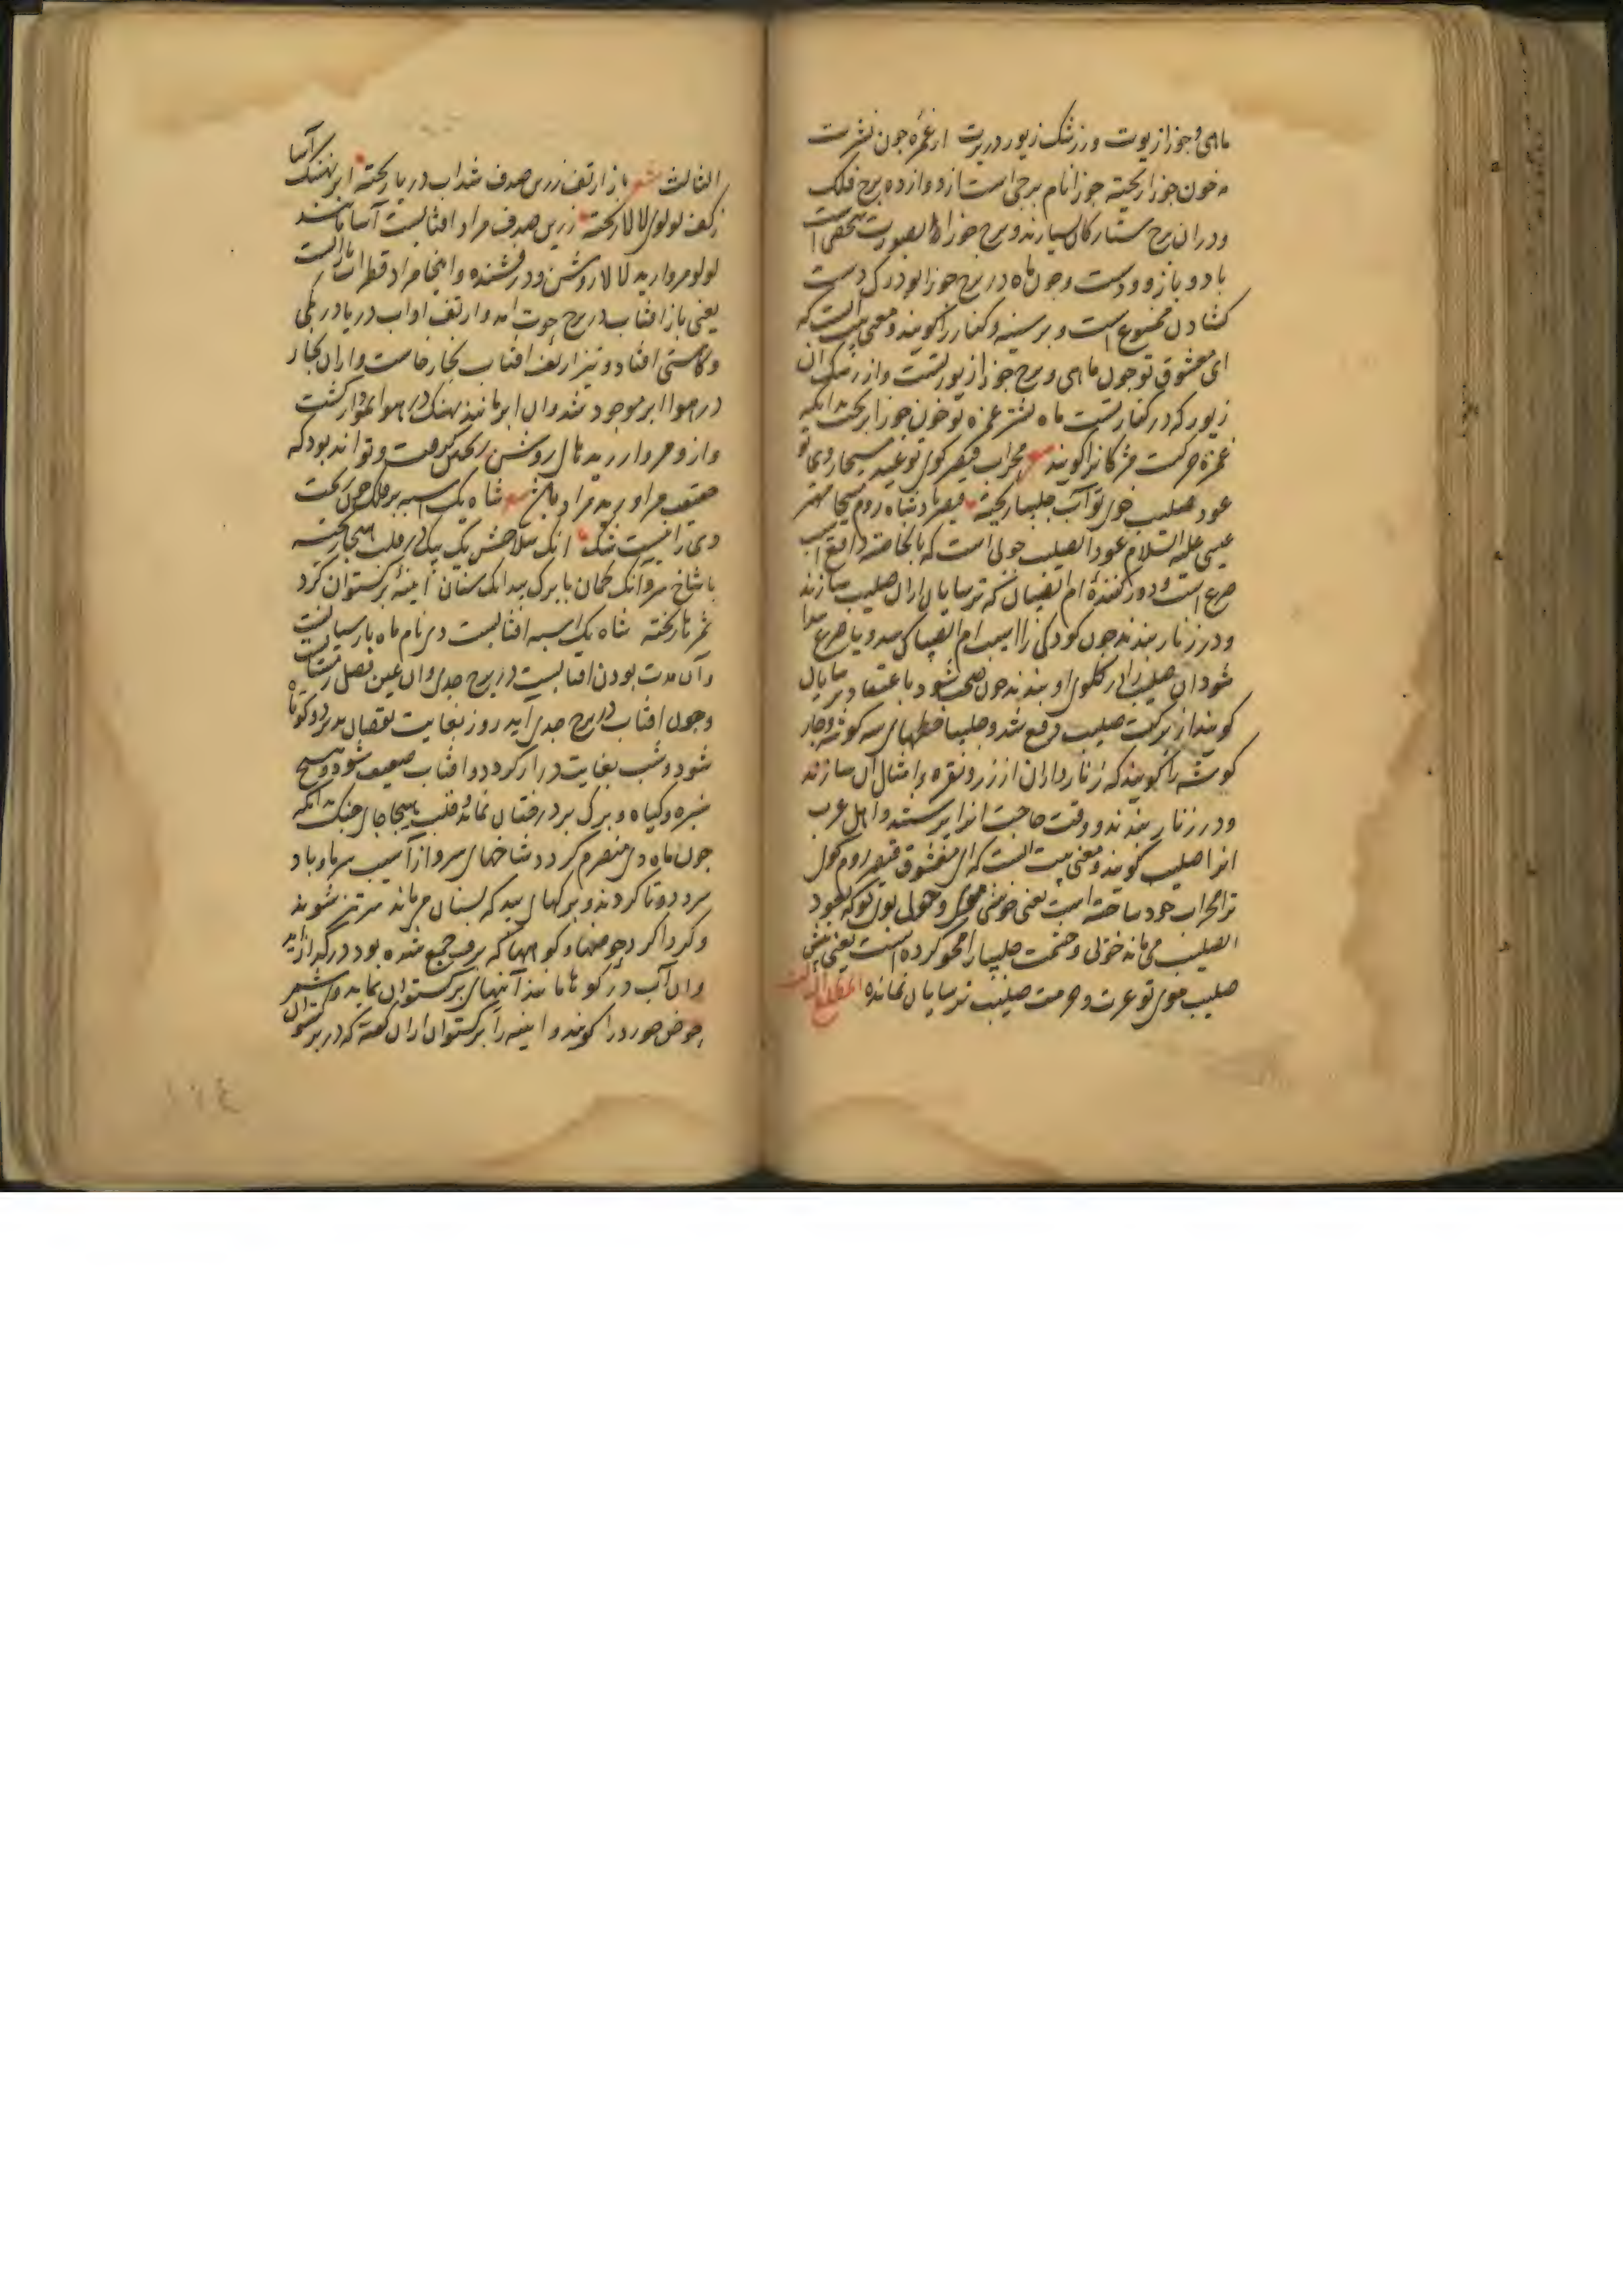 ماهی و جوزا زیورت وز رشک زیور در برت از غمزه چون نشترت
مه خون جوزا ریخته جوزا نام برجی است از دوازده برج فلک
و در ان برج ستارکان بسیارند و برج جوزا بصورت شخصی است
با دو بازو و دست و چون ماه در برج جوزا بود رک دست
کشادن ممنوع است و بر سینه و کنار را کویند و معنی بیت انست که
ای معشوق تو چون ماهی و برج جوزا زیور تست و از رشک ان
زیور که در کنار تست ماه نشتر غمزه تو خون جوزا ریخت بدانکه
غمزه حرکت مژکانرا کویند شعر محراب قیصر کوی تو عید مسیحا روی تو
عود صلیب موی تو آب چلیپا ریخته قیصر پادشاه روم مسیحا مهتر
عیسی علیه السلام عود الصلیب چوبی است که بالخاصه دافع آسیب
صرع است و دور کننده ام الصبیان که ترسایان ازان صلیب سازند
و در زنار بندند چون کودکی را آسیب ام الصبیان رسد و یا صرع پیدا
شود ان صلیب را در کلوی او بندند چون صحت شود باعتقاد ترسایان
کویند از برکت صلیب دفع شد و چلیپا خطهای سه کوشه و چار
کوشه را کویند که زنارداران از زر و نقره و امثال آن سازند
و در زنار بندند و وقت حاجت انرا پرستند و اهل عرب
انرا صلیب کویند و معنی بیت انست که ای معشوق قیصر روم کوی
ترا محراب خود ساخته است یعنی خوشی موی و بوی تو که بعود
الصلیب می ماند خوبی و حشمت چلیپا را محو کرده است یعنی پیش
صلیب موی تو عزت و حرمت صلیب ترسایان نمانده المطلع الثالث
الثالث شعر باز از تف زرین صدف شد آب دریا ریخته ابر نهنک آسا
ز کف لولوی لالا ریخته زرین صدف مراد افتابست آسا مانند
لولو مروارید لالا روشن و درفشنده و اینجا مراد قطرات باران است
یعنی باز افتاب در برج حوت امد و از تف او اب دریا در کمی
و کاستی افتاد و نیز از تف افتاب بخار خاست و ازان بخار
در هوا ابر موجود شد و ان ابر مانند نهنک در هوا نمودار کشت
و ازو مروارید های روشن ریختن کرفت و تواند بود که
شعر شاه یک اسبه بر فلک خون ریخت
دی را نیست شک انک سلاحش یک بیک در قلب هیجا ریخته
با شاخ سرو آنک کمان با برک بید انک سنان آیینه برکستوان کرد
شمرها ریخته شاه یک اسبه افتابست دی نام ماه پارسیانست
و آن مدت بودن افتابست در برج جدی و ان عین فصل زمستان است
و چون افتاب در برج جدی آید روز بغایت نقصان پذیرد و کوتاه
شود و شب بغایت دراز کردد و افتاب ضعیف شود و هیچ
سبزه و کیاه و برک بر درختان نماند و قلب هیجا جای جنک بدانکه
چون ماه دی منصرم کردد شاخهای سرو از آسیب سرما و باد
سرد دوتا کردند و برکهای بید که بسنان می ماند سرتیز شوند
و کرداکرد حوضها و کوهها که برف جمع شده بود در کداز آید
و ان آب در کوها مانند آیینهای برکستوان نماید و شمر
حوض خورد را کویند و ایینه را برکستوان ازان کفته که در برکستوان